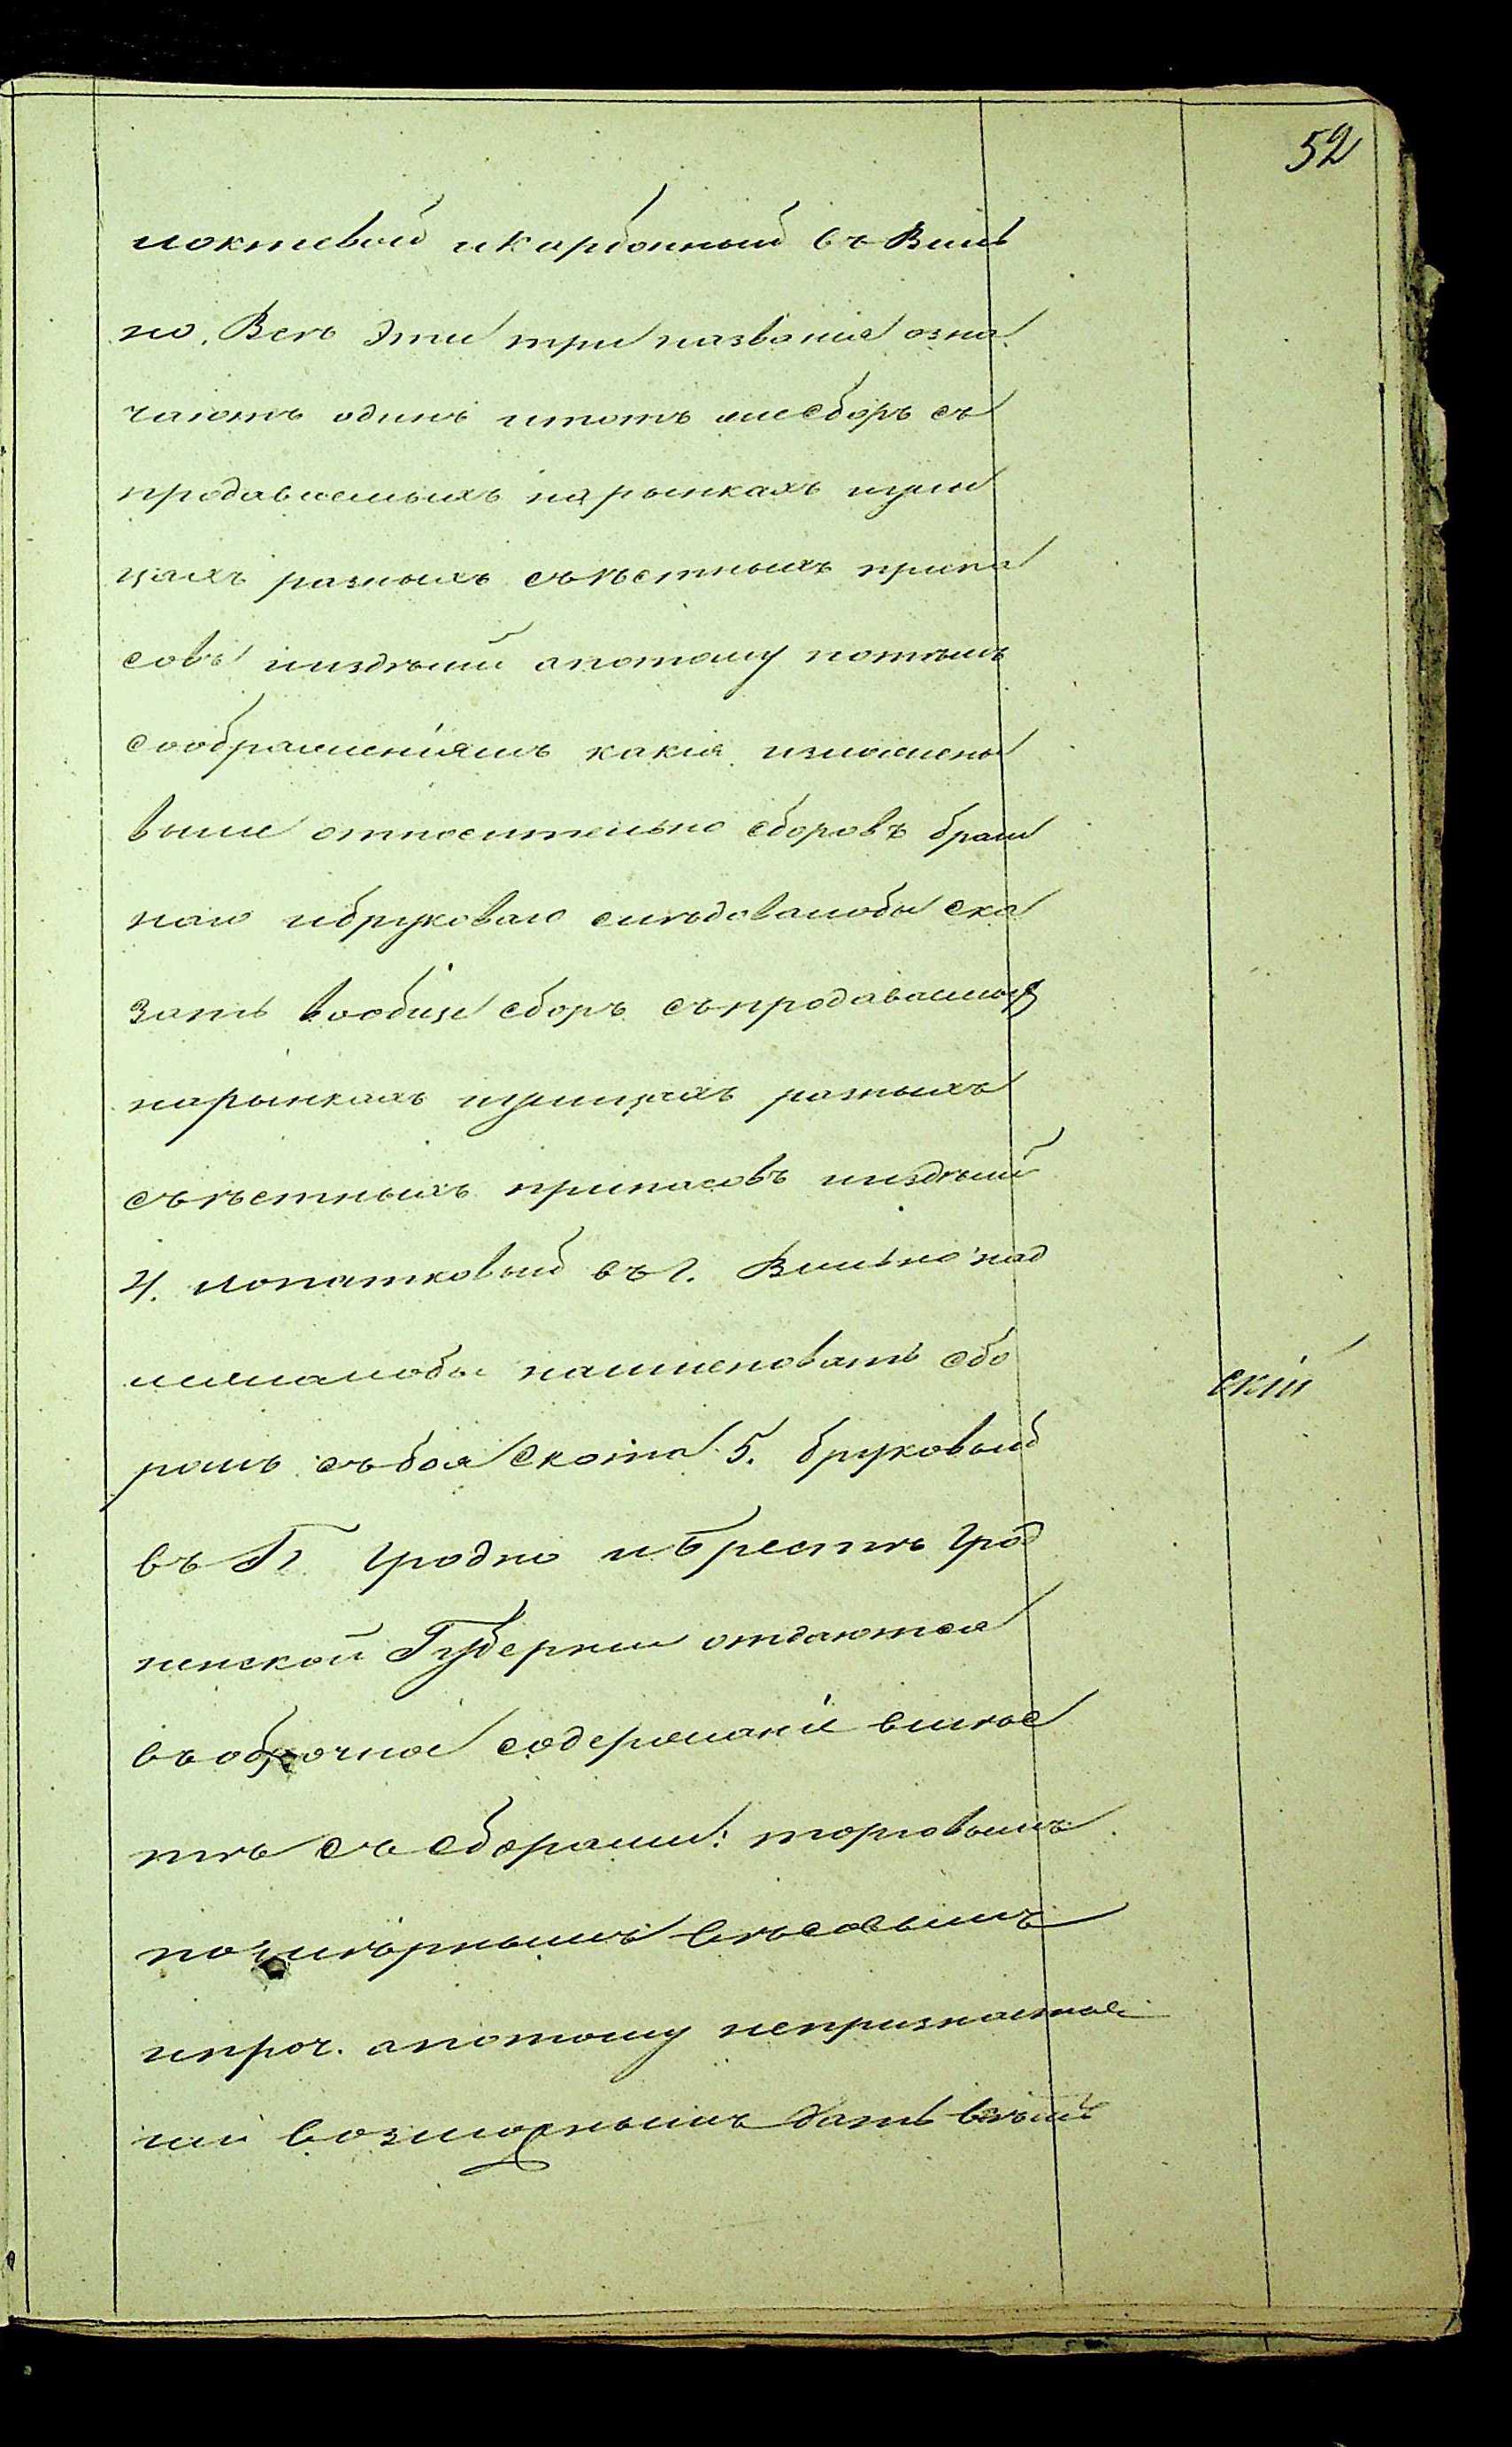 52
локтевой и карбонный въ Виль
но. Всѣ эти три названія озна
чаютъ одинъ и тотъ же сборъ съ
продаваемыхъ на рынкахъ и ули
цахъ разныхъ съѣстныхъ припа
совъ и издѣлій а потому по тѣмъ
соображеніямъ какія изложены
выше относительно сборовъ браж
наго и брукового слѣдовало бы ска
зать вообще сборъ съ продаваемыхъ
на рынкахъ и улицахъ разныхъ
съѣстныхъ припасовъ и издѣлій
4. лопатковый въ г. Вильно над
лежало бы наименовать сбо
ромъ съ боя скота 5. бруковый
въ Гг. Гродно и Брестѣ Грод
ненской Губерніи отдаются
въ оброчное содержаніе вмѣс
тѣ съ сборами: торговымъ
помѣрнымъ вѣсовымъ
и проч. а потому не признается
возможнымъ дать
скій